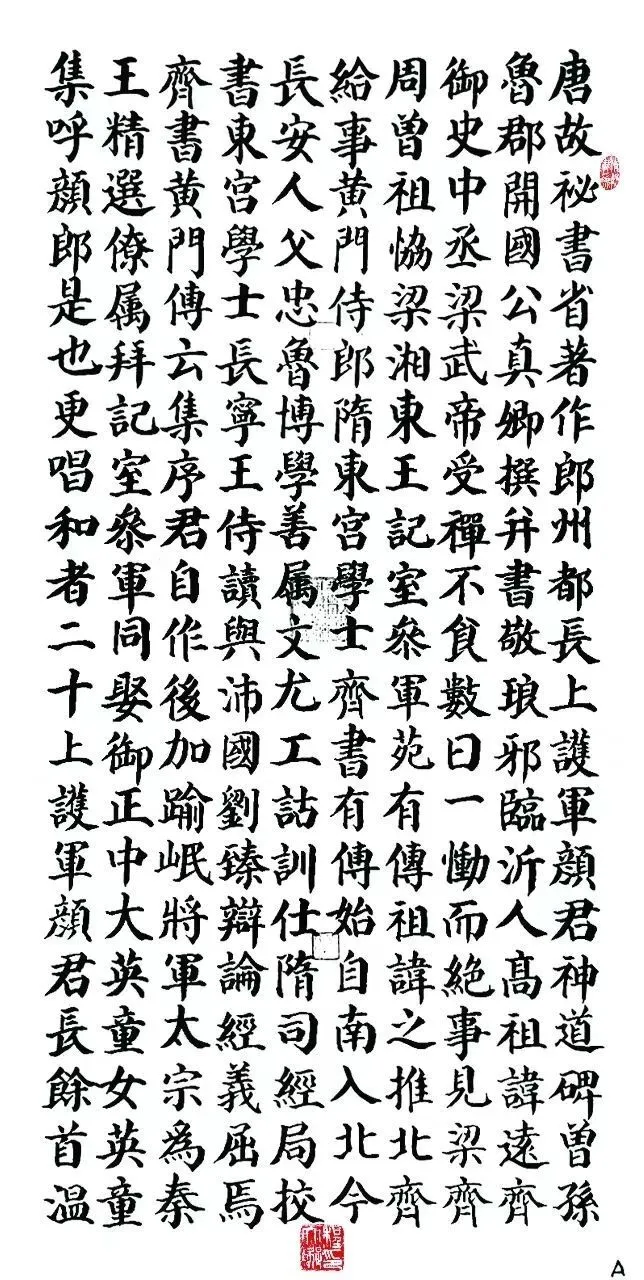 唐故祕書省著作郎州都長上護軍顔君神道碑曾孫
魯郡開國公真卿撰并書敬琅邪臨沂人高祖諱遠齊
御史中丞梁武帝受禪不食數日一慟而絕事見梁齊
周曾祖恊梁湘東王記室叅軍苑有傳祖諱之推北齊
給事黄門侍郎隋東宮學士齊書有傳始自南入北今
長安人父忠魯博學善属文尤工詁訓仕隋司經局挍
書東宮學士長寧王侍讀與沛國劉臻辯論經義屈焉
齊書黄門傳云集序君自作後加踰岷將軍太宗為秦
王精選僚属拜記室叅軍同娶御正中大英童女英童
集呼顔郎是也更唱和者二十上護軍顔君長餘首温
A